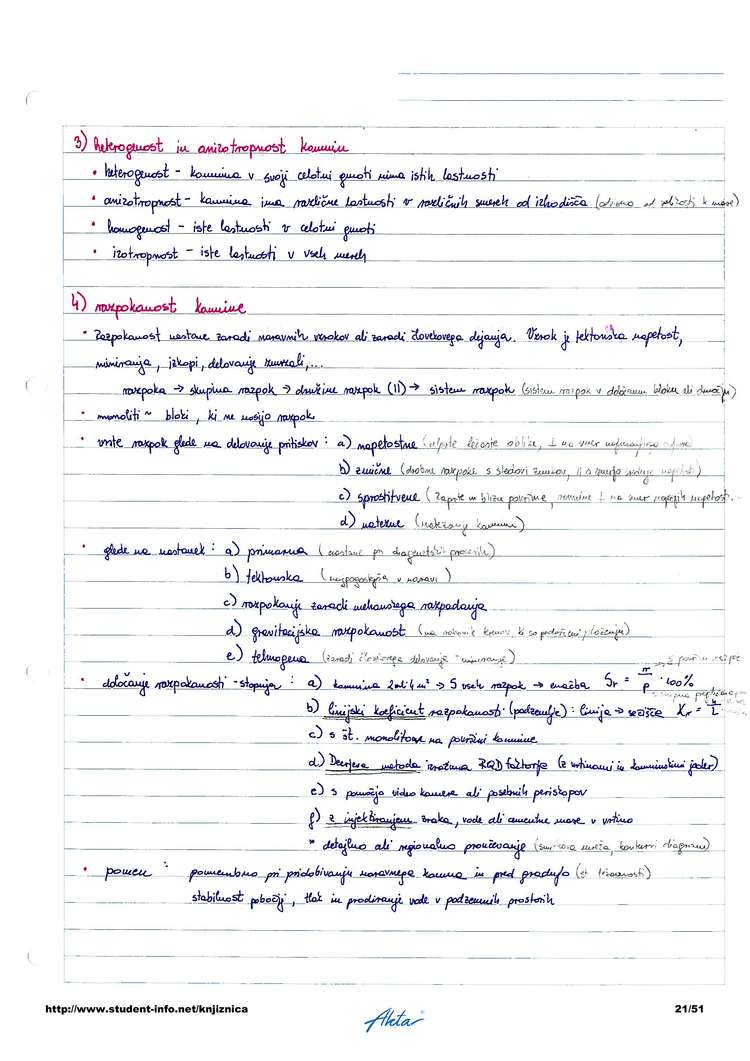 3) heterogenost in anizotropnost kamnin
• heterogenost - kamnina v svoji celotni gmoti nima istih lastnosti
• anizotropnost - kamnina ima različne lastnosti v različnih smereh od izhodišča (odvisno od
• homogenost - iste lastnosti v celotni gmoti
• izotropnost - iste lastnosti v vseh smereh
4) razpokanost kamnine
• Razpokanost nastane zaradi naravnih vzrokov ali zaradi človekovega dejanja. Vzrok je tektonska napetost,
miniranja, izkopi, delovanje zmrzali,...
razpoka → skupina razpok → družine razpok (II) → sistem razpok (sistem razpok v določenem bloku ali območju)
• monoliti ~ bloki, ki ne nosijo razpok
• vrste razpok glede na delovanje pritiskov : a) napetostne (odprte lečaste oblike, ⊥ na smer
b) zmične (drobne razpoke s sledovi zmikov, II s smerjo
c) sprostitvene (zaprte in blizu površine, ⊥ na smer napetosti
d) natezne
• glede na nastanek : a) primarna (nastane pri diagenetskih procesih)
b) tektonska (najpogostejša v naravi)
c) razpokanje zaradi mehanskega razpadanja
d) gravitacijska razpokanost
e) tehnogena (zaradi človekovega delovanja - miniranje)
• določanje razpokanosti - stopnja : a) kamnina 2 ali 4 m² → S vseh razpok → enačba Sr = m/p · 100%
b) linijski koeficient razpokanosti (podzemlje) : linija → sečišča Kr = n/L
c) s št. monolitov na površini kamnine
d) Deerjeva metoda izražena RQD faktorja (z vrtinami in kamninskimi jedri)
e) s pomočjo video kamere ali posebnih periskopov
f) z injektiranjem zraka, vode ali cementne mase v vrtino
* detajlno ali regionalno proučevanje (konturni diagrami)
• pomen : pomembno pri pridobivanju naravnega kamna in pred gradnjo
stabilnost pobočij, tlak in prodiranje vode v podzemnih prostorih
http://www.student-info.net/knjiznica
Akta
21/51